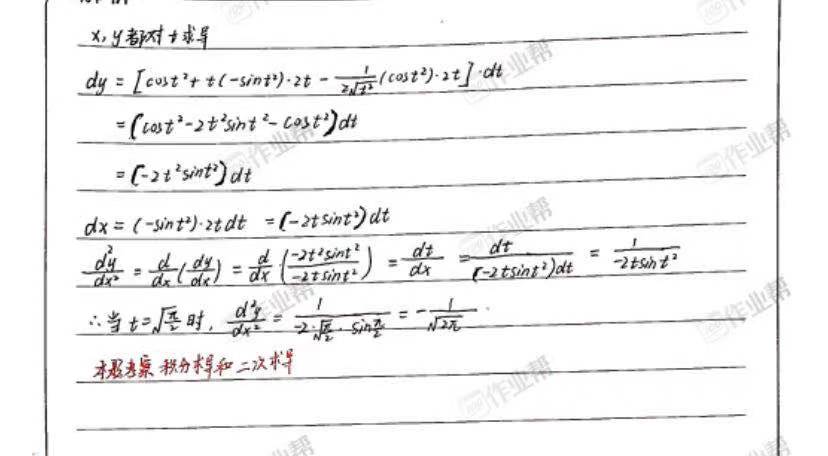 x, y都对t求导
dy = [cost²+ t(-sint²)·2t - \frac{1}{2\sqrt{t²}}(cost²)·2t]·dt
= (cost²-2t²sint²-cost²)dt
= (-2t²sint²)dt
dx = (-sint²)·2tdt = (-2tsint²)dt
\frac{d²y}{dx²} = \frac{d}{dx}(\frac{dy}{dx}) = \frac{d}{dx}(\frac{-2t²sint²}{-2tsint²}) = \frac{dt}{dx} = \frac{dt}{(-2tsint²)dt} = \frac{1}{-2tsint²}
∴当t=\sqrt{\frac{π}{2}}时, \frac{d²y}{dx²} = \frac{1}{-2·\sqrt{\frac{π}{2}}·sin\frac{π}{2}} = -\frac{1}{\sqrt{2π}}.
本题考察 积分求导和二次求导
作业帮
作业帮
作业帮
作业帮
作业帮
作业帮
作业帮
作业帮
作业帮